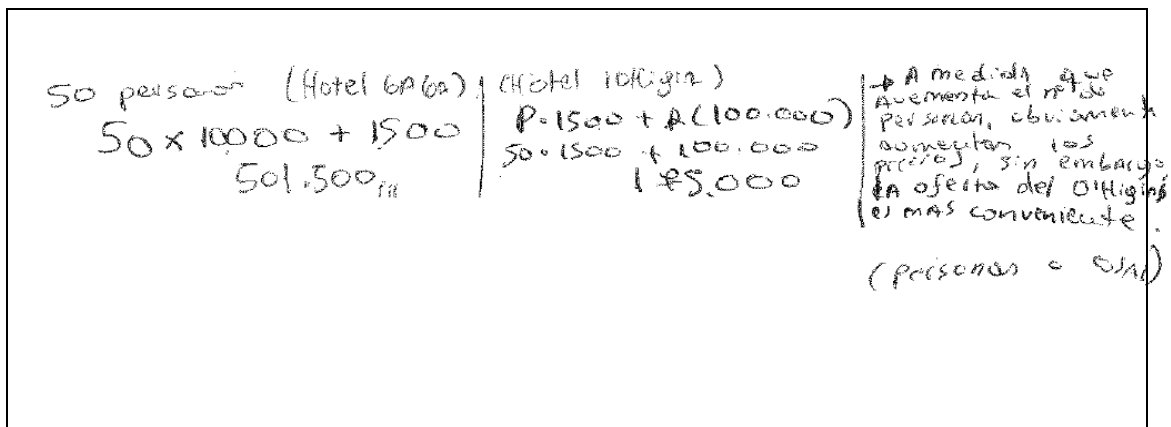 50 personas (Hotel GAGA)
50 x 10000 + 1500
501.500
(Hotel 
P·1500 + A(100.000)
50·1500 + 100.000
175.000
→ A medida que
Aumenta el nº de
personas, obviamente
aumentan los
precios, sin embargo
la oferta del O'Higins
es mAs conveniente.
(personas a